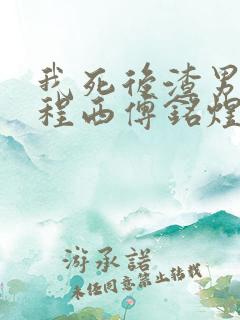 我死後渣男
程西傅銘煌
游承諾
未經同意禁止轉載